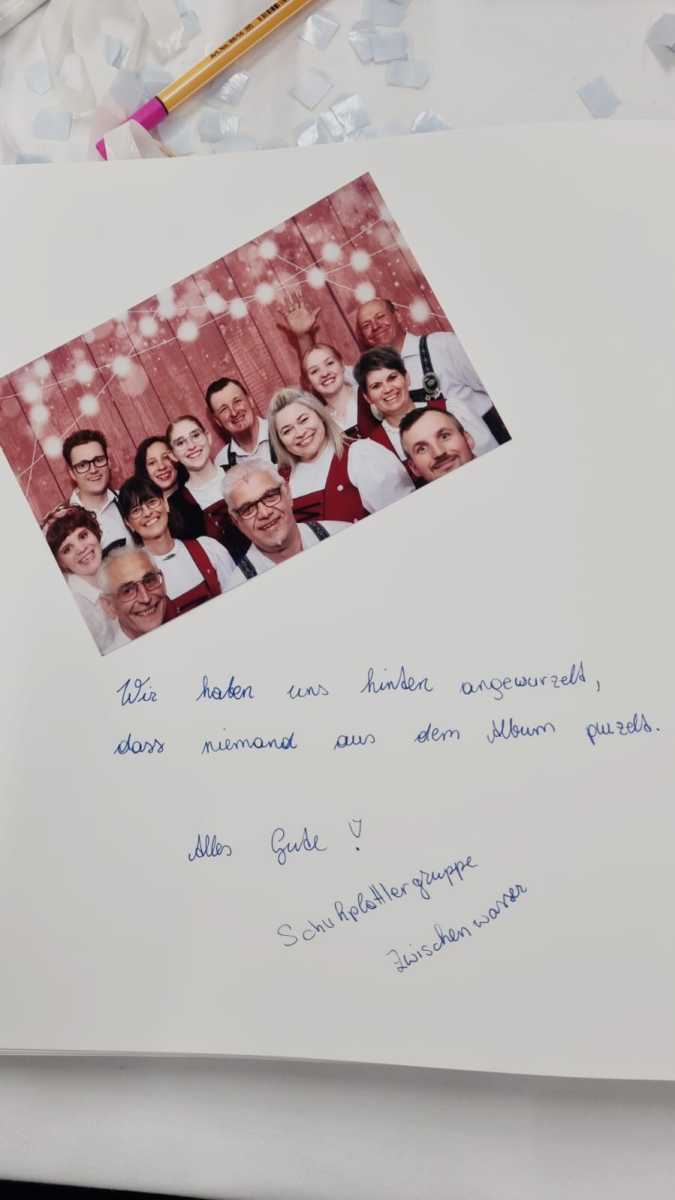 Wir haben uns hinten angewurzelt,
dass niemand aus dem Album purzelt.
Alles Gute!
Schuhplattlergruppe
Zwischenwasser